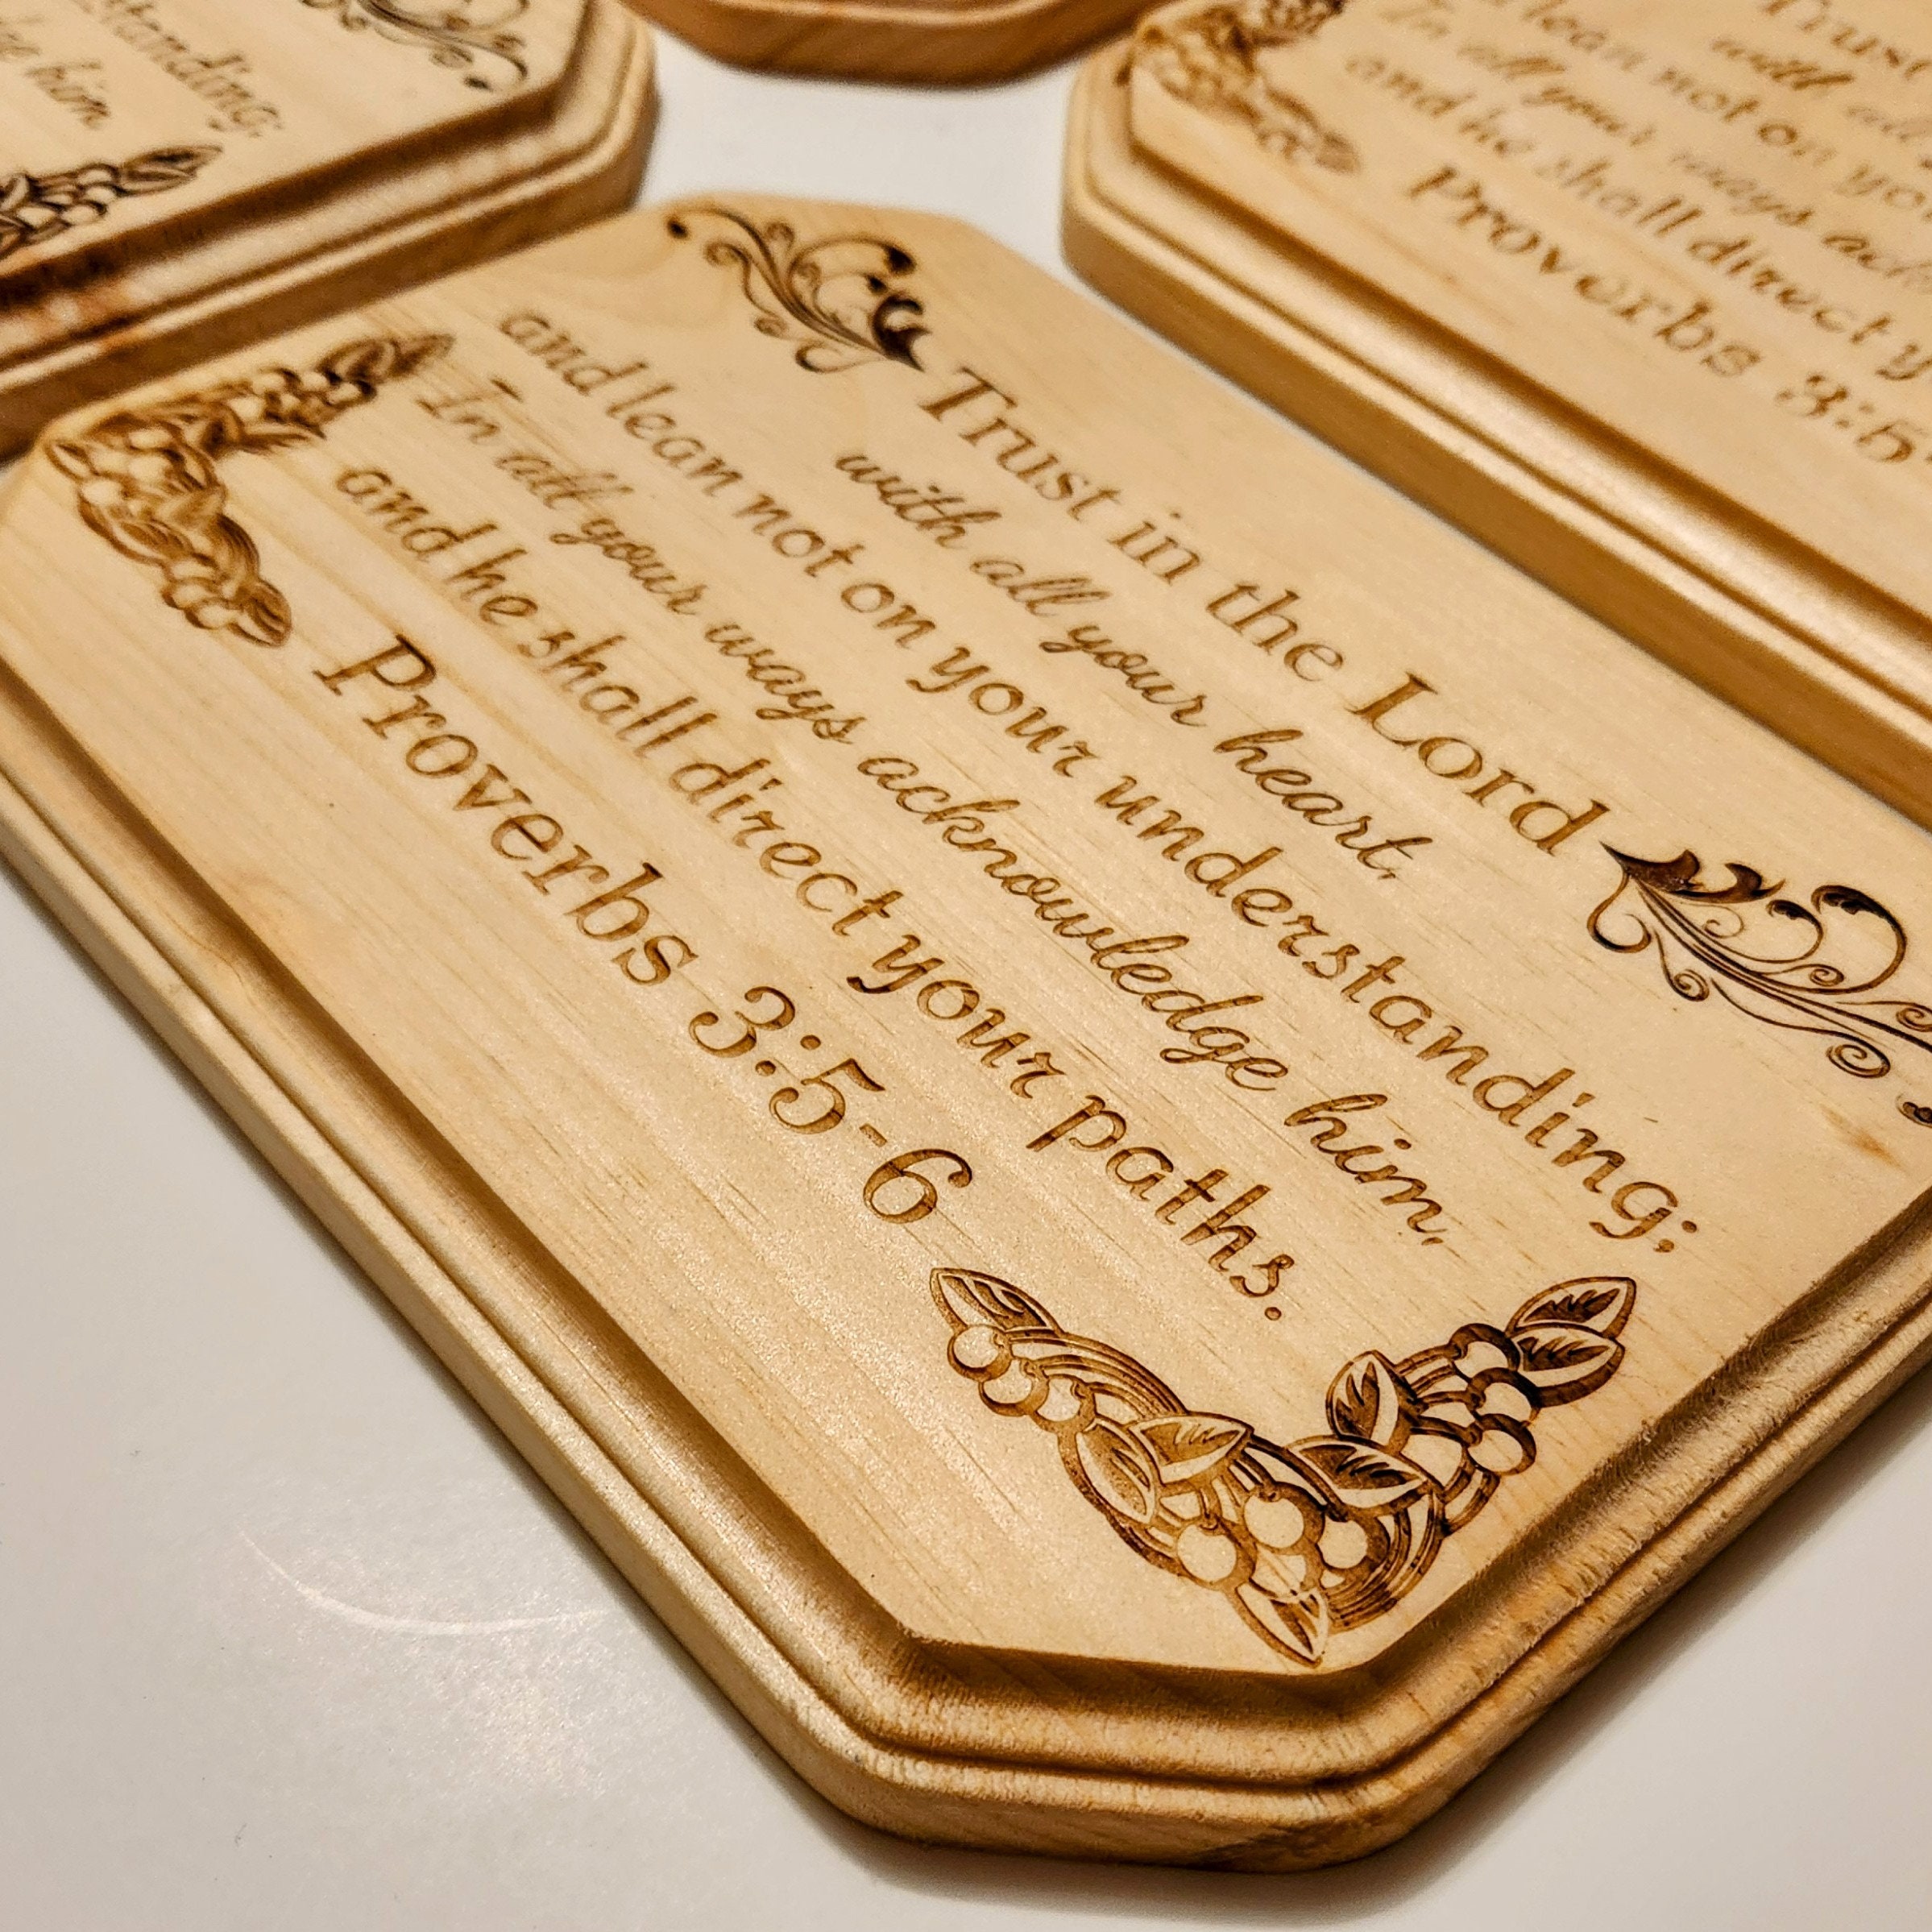 Trust in the Lord
with all your heart,
and lean not on your understanding;
In all your ways acknowledge him,
and he shall direct your paths.
Proverbs 3:5-6
standing;
him
Trust
with all
lean not on
In all your ways
and he shall direct
Proverbs 3:5